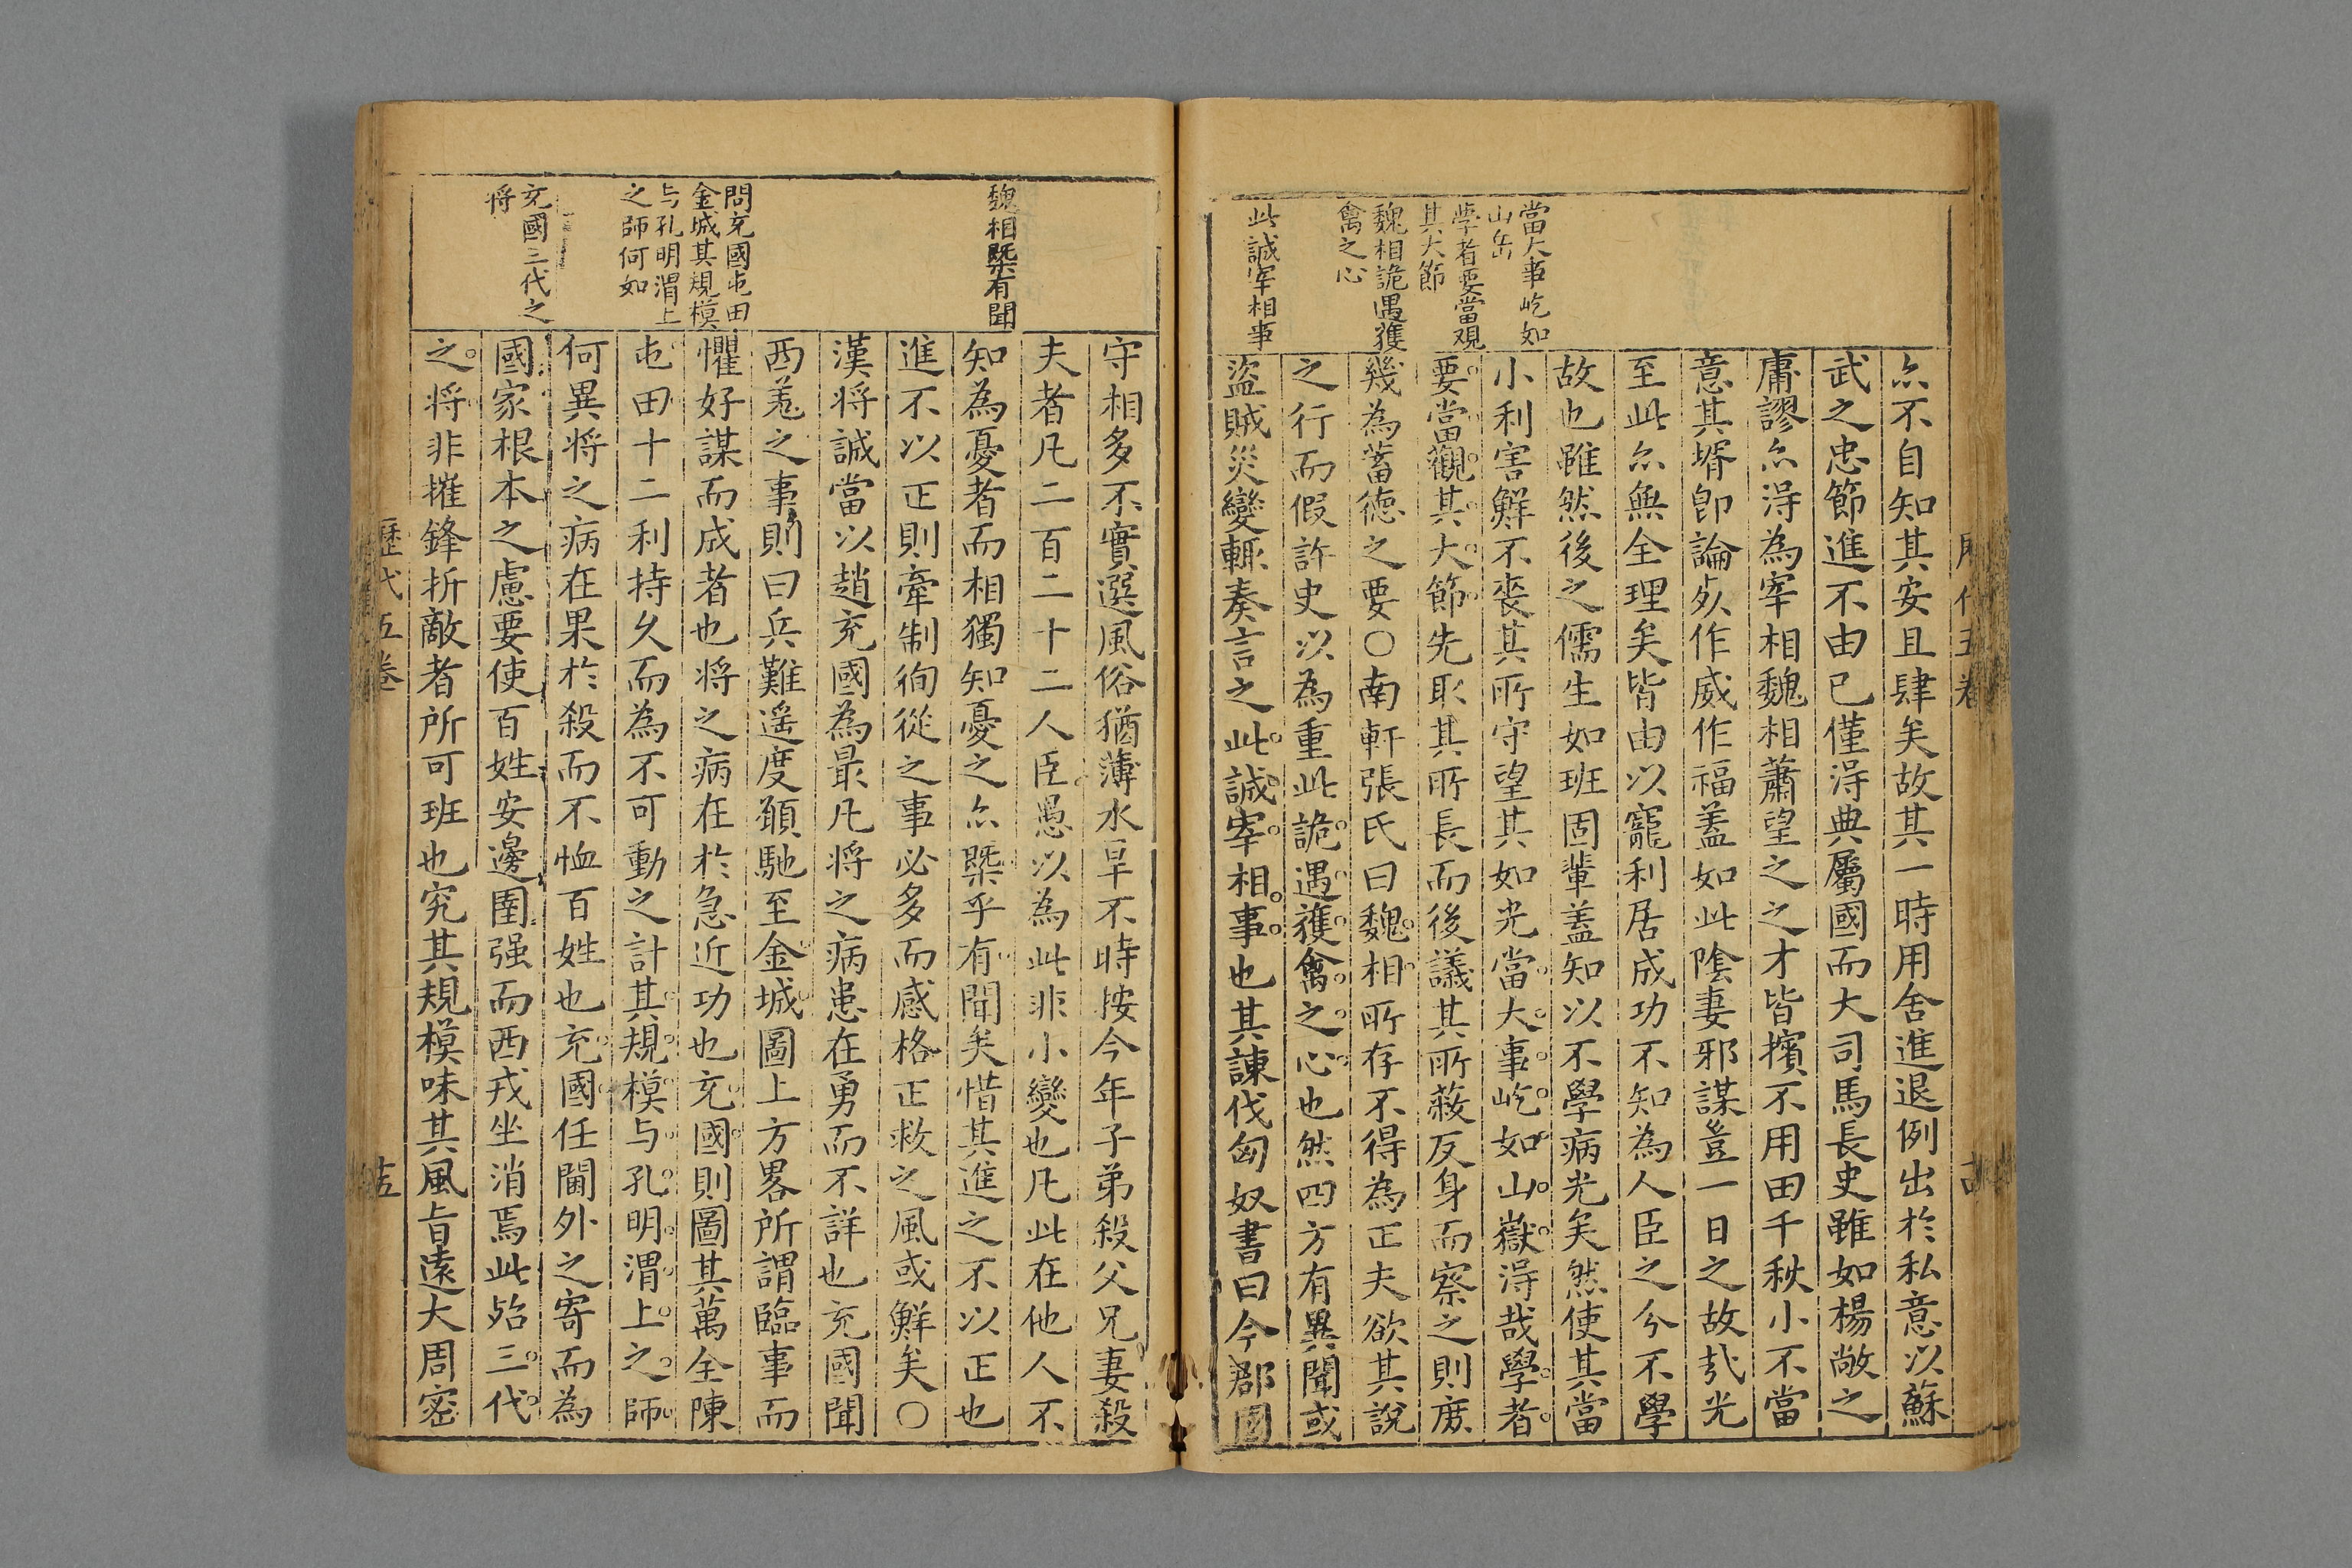 當大事屹如
山岳
學者要當观
其大節
魏相詭遇獲
禽之心
此誠宰相事
厶不自知其安且肆矣故其一時用舍進退例出於私意以蘇
武之忠節進不由已僅淂典屬國而大司馬長史雖如楊敞之
庸謬厶淂為宰相魏相蕭望之之才皆擯不用田千秋小不當
意其壻卽論㱕作威作福蓋如此陰妻邪謀豈一日之故㢤光
至此厶無全理矣皆由以寵利居成功不知為人臣之今不學
故也雖然後之儒生如班固輩蓋知以不學病光矣然使其當
小利害鮮不丧其所守望其如光當大事屹如山嶽淂哉學者
要當觀其大節先取其所長而後議其所蔽反身而察之則庻
幾為蓄德之要○南軒張氏曰魏相所存不得為正夫欲其說
之行而假許史以為重此詭遇獲禽之心也然四方有異聞或
盜賊災變輒奏言之此誠宰相事也其諫伐匈奴書曰今郡國
魏相槩有聞
問充國屯田
金城其規模
与孔明渭上
之師何如
充國三代之
将
守相多不實選風俗猶薄水旱不時按今年子弟殺父兄妻殺
夫者凡二百二十二人臣愚以為此非小變也凡此在他人不
知為憂者而相獨知憂之厶槩乎有聞矣惜其進之不以正也
進不以正則牽制徇從之事必多而感格正救之風或鮮矣○
漢将誠當以趙充國為最凡将之病患在勇而不詳也充國聞
西羗之事則曰兵難遥度願馳至金城圖上方畧所謂臨事而
懼好謀而成者也将之病在於急近功也充國則圖其萬全陳
屯田十二利持久而為不可動之計其規模与孔明渭上之師
何異将之病在果於殺而不恤百姓也充國任閫外之寄而為
國家根本之慮要使百姓安邊圉强而西戎坐消焉此殆三代
之将非摧鋒折敵者所可班也究其規模味其風旨遠大周密
歷代五卷